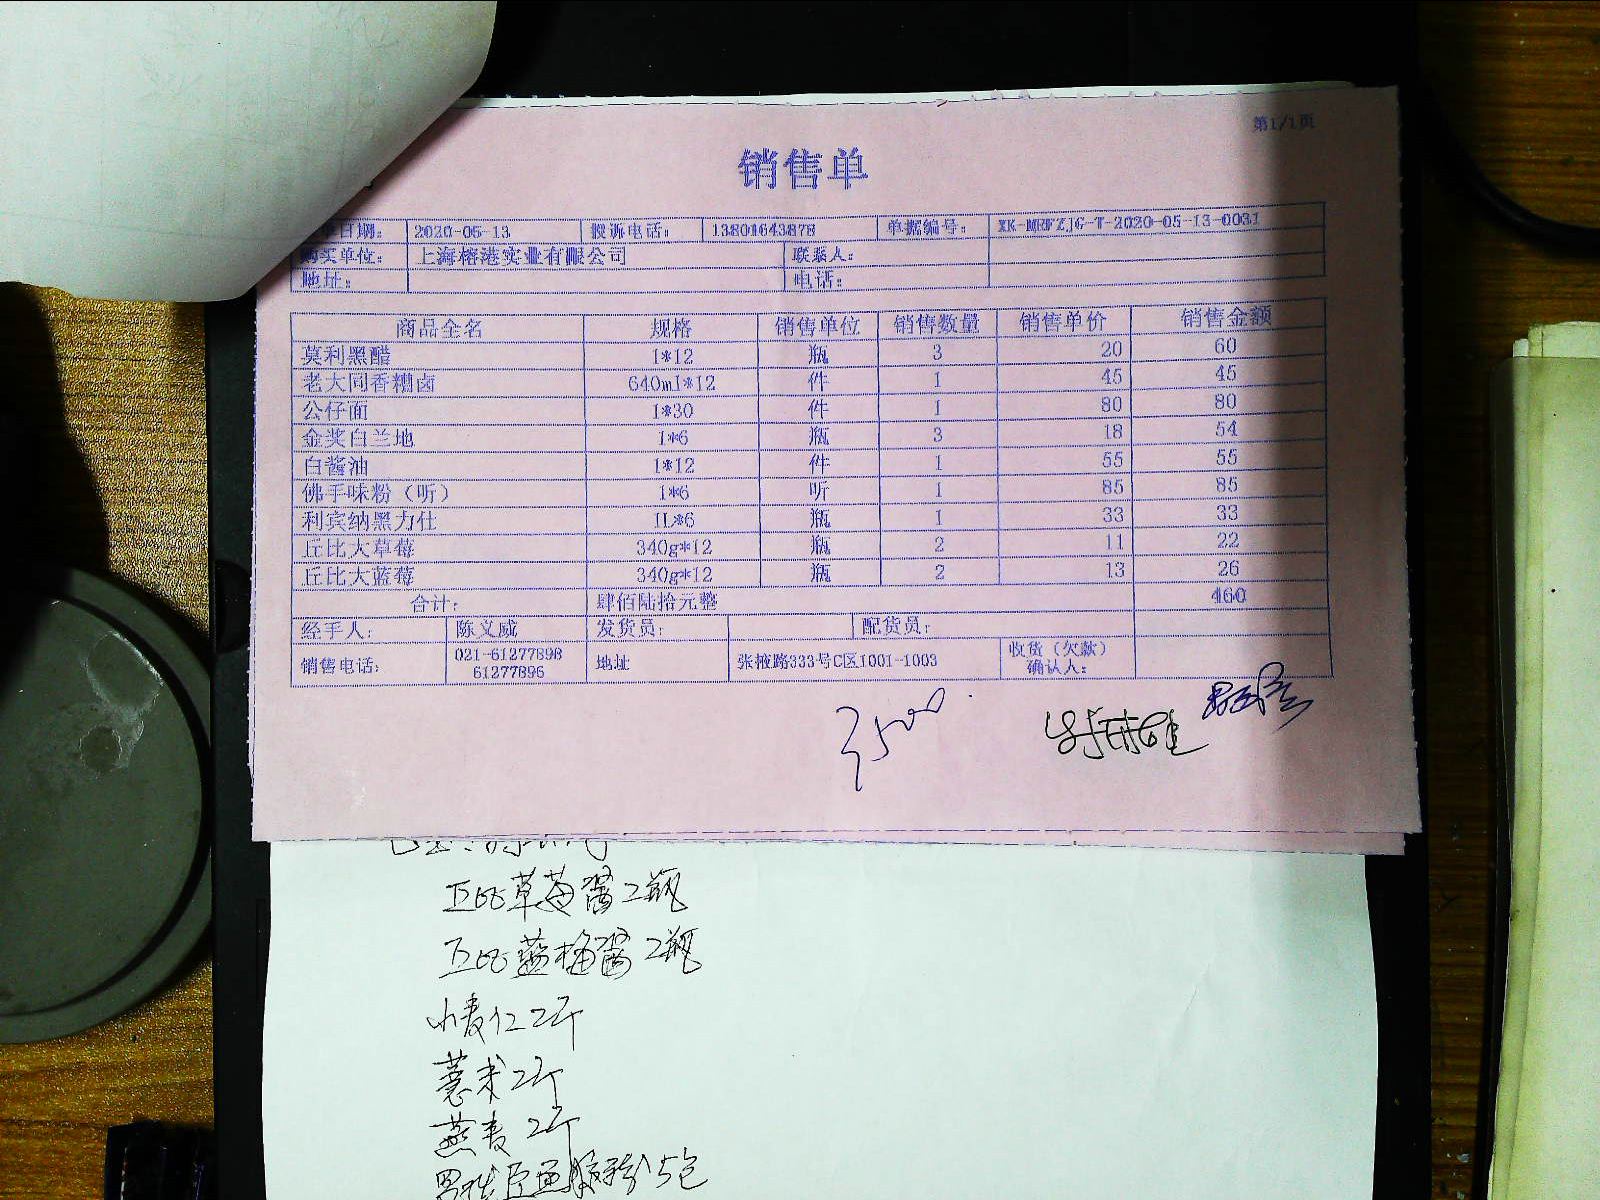 第1/1页
销售单
日期： 2020-05-13 投诉电话： 13801643878 单据编号： XK-MRFZJG-T-2020-05-13-0031
购买单位： 上海榕港实业有限公司 联系人：
地址： 电话：
商品全名 规格 销售单位 销售数量 销售单价 销售金额
莫利黑醋 1*12 瓶 3 20 60
老大同香糟卤 640ml*12 件 1 45 45
公仔面 1*30 件 1 80 80
金奖白兰地 1*6 瓶 3 18 54
白酱油 1*12 件 1 55 55
佛手味粉（听） 1*6 听 1 85 85
利宾纳黑力仕 1L*6 瓶 1 33 33
丘比大草莓 340g*12 瓶 2 11 22
丘比大蓝莓 340g*12 瓶 2 13 26
合计： 肆佰陆拾元整 460
经手人： 陈义威 发货员： 配货员：
销售电话： 021-61277898 61277896 地址 张掖路333号C区1001-1003 收货（欠款）确认人：
丘比草莓酱2瓶
丘比蓝梅酱2瓶
小麦仁2斤
薏米2斤
燕麦2斤
5包